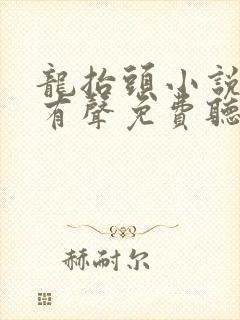 龍抬頭小說
有聲免費聽
赫耐尔